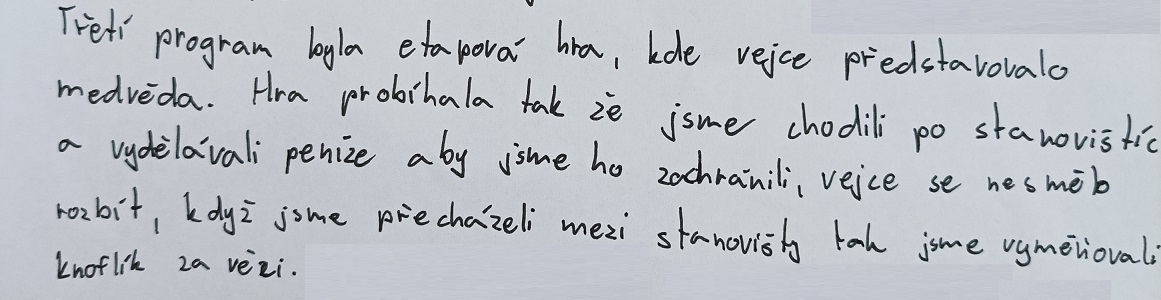 Třetí program byla etapová hra, kde vejce představovalo
medvěda. Hra probíhala tak že jsme chodili po stanovištíc
a vydělávali peníze aby jsme ho zachránili, vejce se nesmělo
rozbít, když jsme přecházeli mezi stanovišty tak jsme vyměňovali
knoflík za vězi.